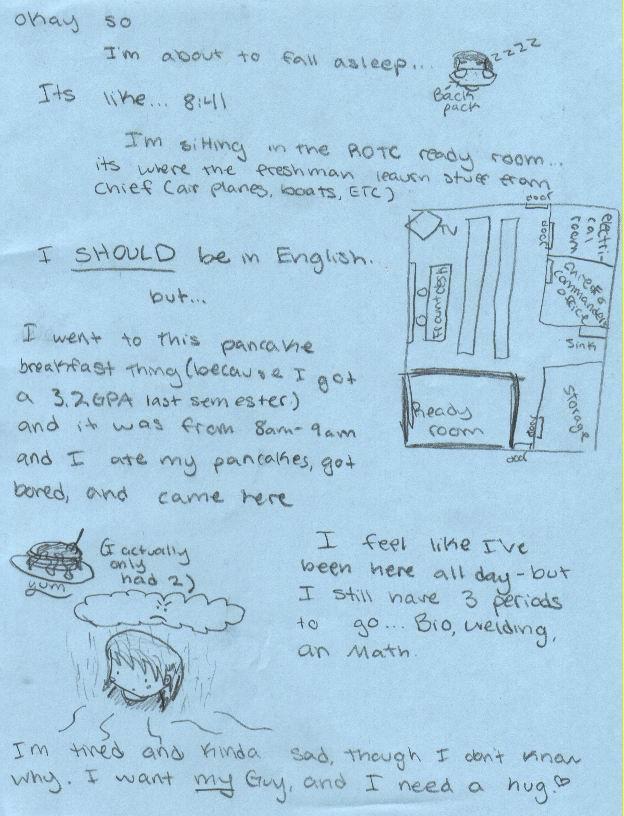 okay so
I'm about to fall asleep...
zzzz
Back
pack
Its like... 8:41
I'm sitting in the ROTC ready room...
its where the freshman learn stuff from
Chief (air planes, boats, ETC)
I SHOULD be in English.
but...
I went to this pancake
breakfast thing (because I got
a 3.2 GPA last semester)
and it was from 8am-9am
and I ate my pancakes, got
bored, and came here
door
TV
door
electri
cal
room
Frount desk
Chief &
commanders
office
sink
Ready
room
door
Storage
door
yum
(I actually
only
had 2)
I feel like I've
been here all day - but
I still have 3 periods
to go... Bio, welding,
an Math.
Im tired and kinda sad, though I don't know
why. I want my Guy, and I need a hug.